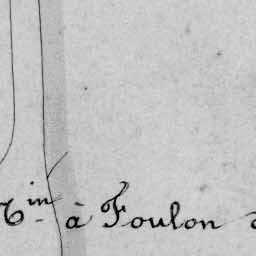 Min à Foulon